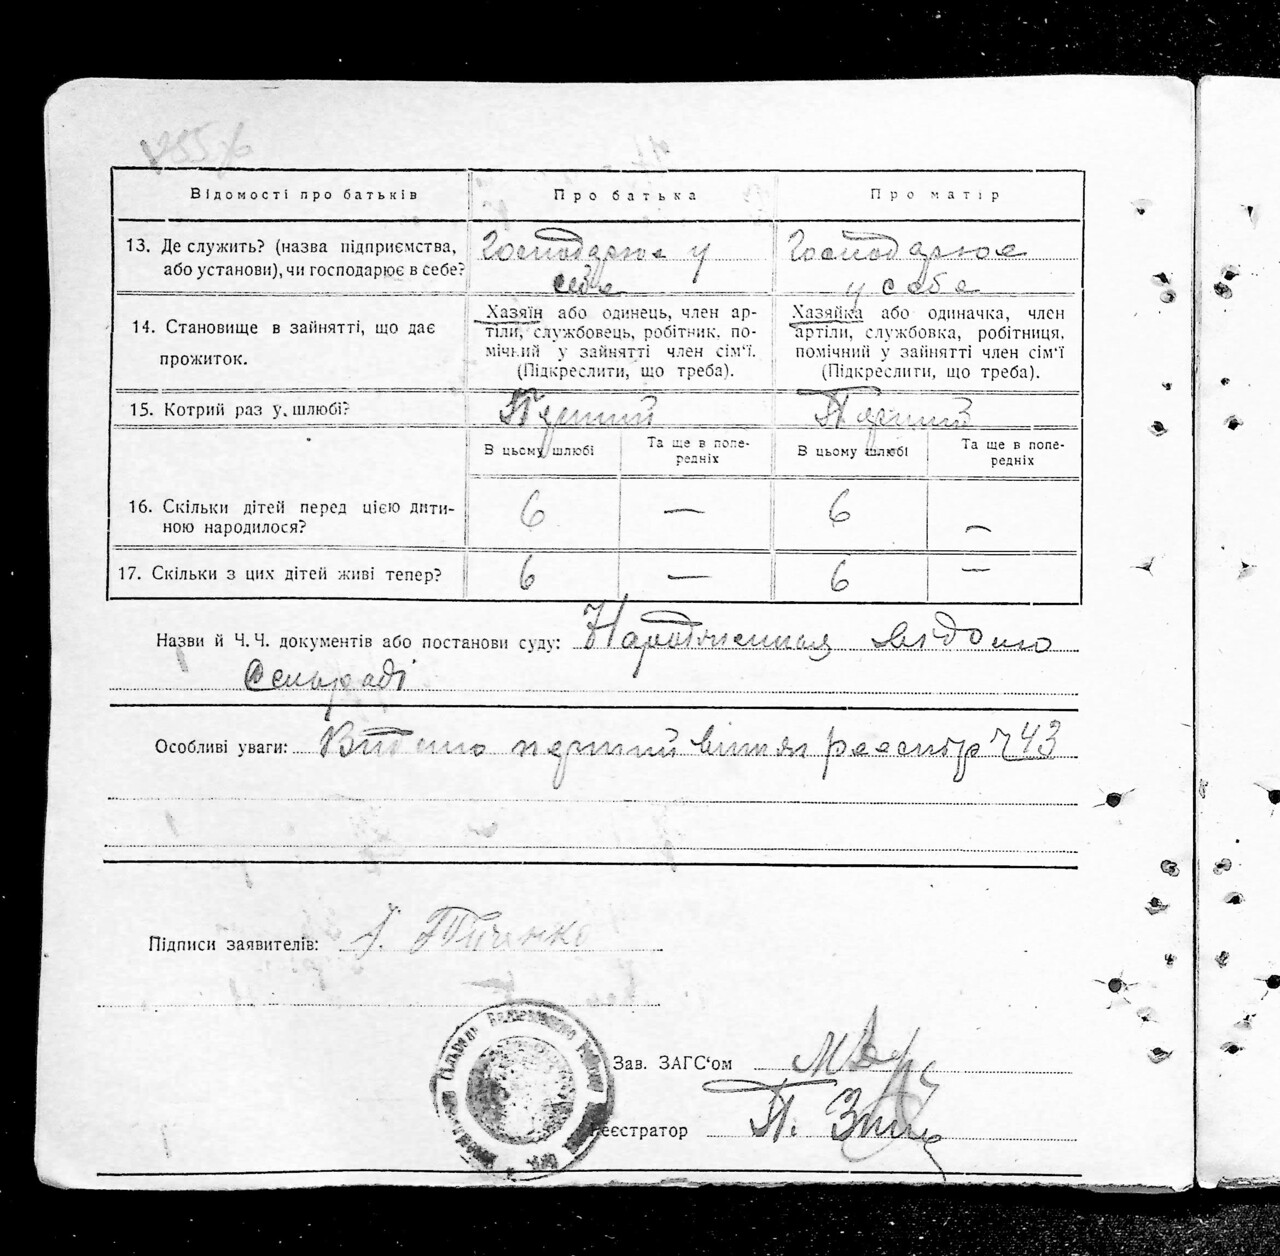 Відомості про батьків Про батька Про матір
13. Де служить? (назва підприємства, або установи), чи господарює в себе?
Господарює у
себе
Господарює
у себе
14. Становище в зайнятті, що дає
прожиток.
Хазяїн або одинець, член ар-
тілі, службовець, робітник, по-
мічний у зайнятті член сім'ї.
(Підкреслити, що треба).
Хазяйка або одиначка, член
артіли, службовка, робітниця,
помічний у зайнятті член сім'ї
(Підкреслити, що треба).
15. Котрий раз у шлюбі? Перший Перший
В цьому шлюбі Та ще в попе-
редніх
В цьому шлюбі Та ще в попе-
редніх
16. Скільки дітей перед цією дити-
ною народилося?
6 — 6 —
17. Скільки з цих дітей живі тепер? 6 — 6 —
Назви й Ч.Ч. документів або постанови суду: Народження відомо
Сельраді
Особливі уваги: Видано перший реєстр Ч 43
Підписи заявителів:
Зав. ЗАГС'ом
Реєстратор П.